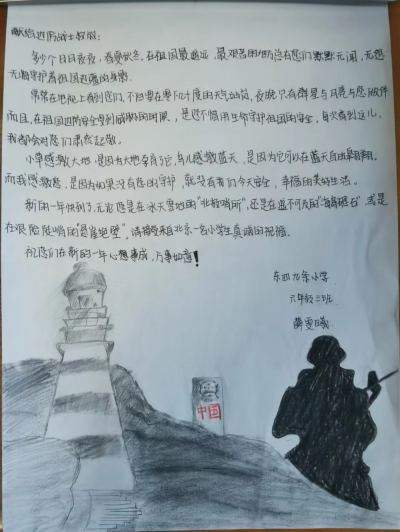 献给边防战士叔叔:
多少个日日夜夜,春夏秋冬,在祖国最遥远,最艰苦的地方总有您们默默无闻,无怨
无悔守护着祖国边疆的身影.
常常在电视上看到您们,不但要在零下几十度的天气站岗,夜晚只有群星与月亮与您做伴
而且,在祖国边防安全受到威胁的时候,是您不惜用生命守护祖国的安全,每次看到这儿,
我都会对您们肃然起敬.
小草感激大地,是因为大地孕育了它,鸟儿感激蓝天,是因为它可以在蓝天自由翱翔.
而我感激您,是因为如果没有您的守护,就没有我们今天安全,幸福的美好生活.
新的一年快到了,无论您是在冰天雪地的"北极哨所",还是在遥不可及的"海岛礁石",或是
在艰险陡峭的"悬崖绝壁",请接受来自北京一名小学生真诚的祝福.
祝您们在新的一年心想事成,万事如意!
东四九条小学
六年级三班
薛雯曦
中国